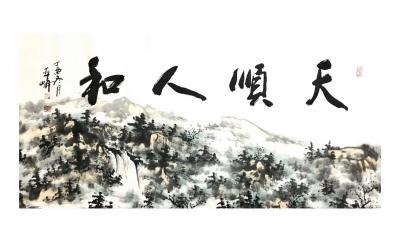 天順人和
丁酉冬月